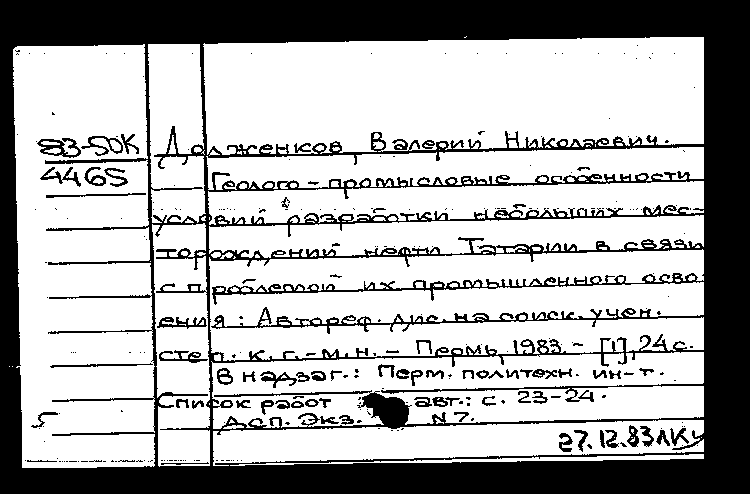 83-50К Долженков, Валерий Николаевич.
4465 Геолого-промысловые особенности
условий разработки небольших мес-
торождений нефти Татарии в связи
с проблемой их промышленного осво-
ения: Автореф. дис. на соиск. учен.
степ. к. г.-м. н. - Пермь, 1983. - [1], 24 с.
В надзаг.: Перм. политехн. ин-т.
Список работ авт.: с. 23-24.
5 Доп. Экз. N 7.
27.12.83